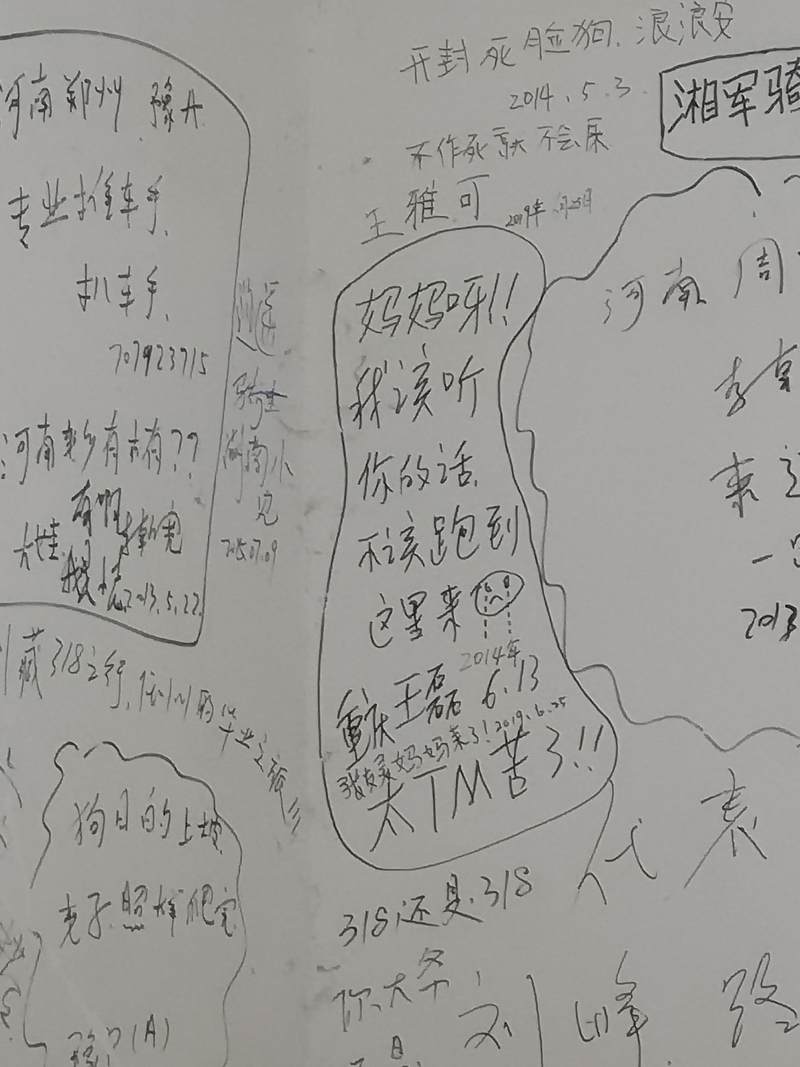 河南郑州 豫A
专业推车手
扒车手
707923715
河南老乡有木有??
有啊
2013.5.22
逍遥
骑士
湖南小
2015.07.09
藏318之行,
的毕业之旅
狗日的上坡
老子照样爬完
(A)
开封死脸狗.浪浪安
2014.5.3
不作死就不会
王雅可
2019年
妈妈呀!!
我该听
你的话
不该跑到
这里来
2014年
重庆王磊 6.13
妈妈来了!2019.6.25
太TM苦了!!
318还是318
你大爷
湘军骑
河南 周
李
来
一
2013
代表
刘峰